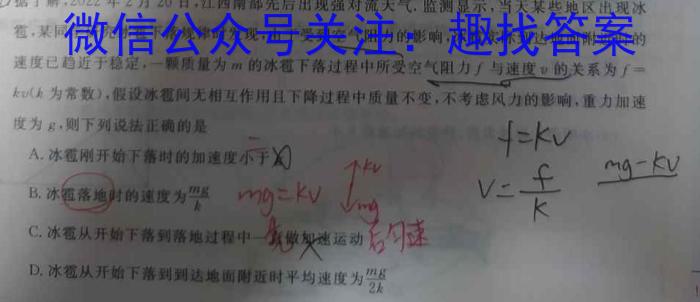 据了解,2022年2月20日,江西南部先后出现强对流天气,监测显示,当天某些地区出现冰
雹,某同
微信公众号关注:趣找答案
速度已趋近于稳定,一颗质量为m的冰雹下落过程中所受空气阻力f与速度v的关系为f=
kv(k为常数),假设冰雹间无相互作用且下降过程中质量不变,不考虑风力的影响,重力加速
度为g,则下列说法正确的是
A.冰雹刚开始下落时的加速度小于
B.冰雹落地时的速度为mg/k
C.冰雹从开始下落到落地过程中一直做加速运动
D.冰雹从开始下落到到达地面附近时平均速度为mg/2k
f=kv
v=f/k
mg-kv
mg=kv
kv
mg
后匀速